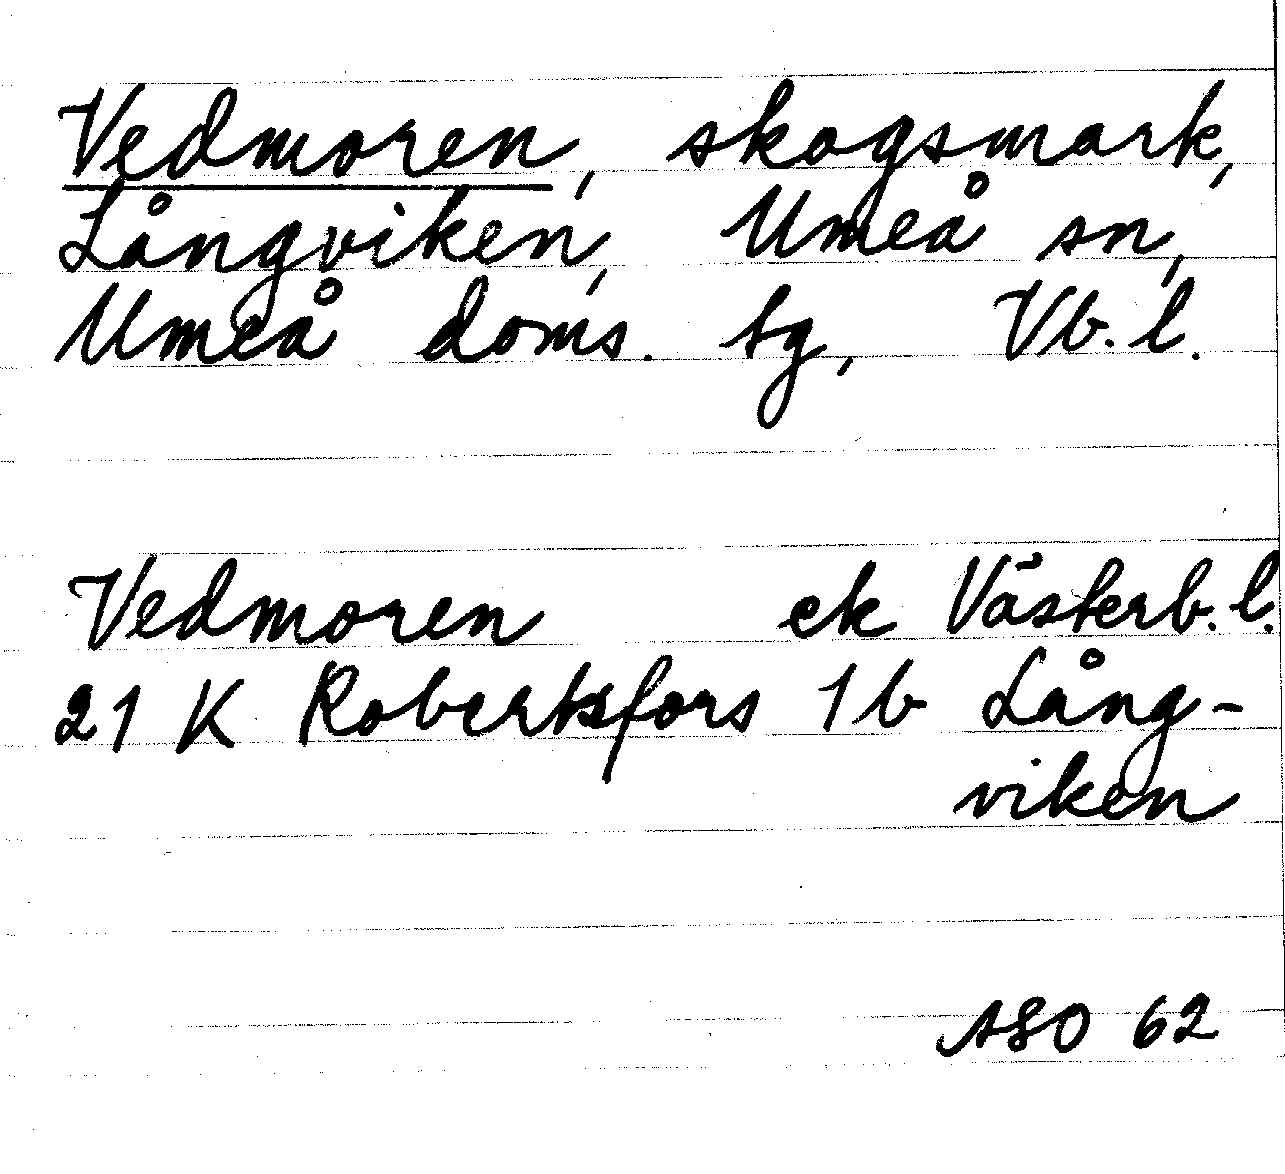 Vedmoren, skogsmark,
Långviken, Umeå sn,
Umeå doms. tg, Vb. l.
Vedmoren ek Västerb. l.
21 K Robertsfors 1 b Lång-
viken
ASO 62